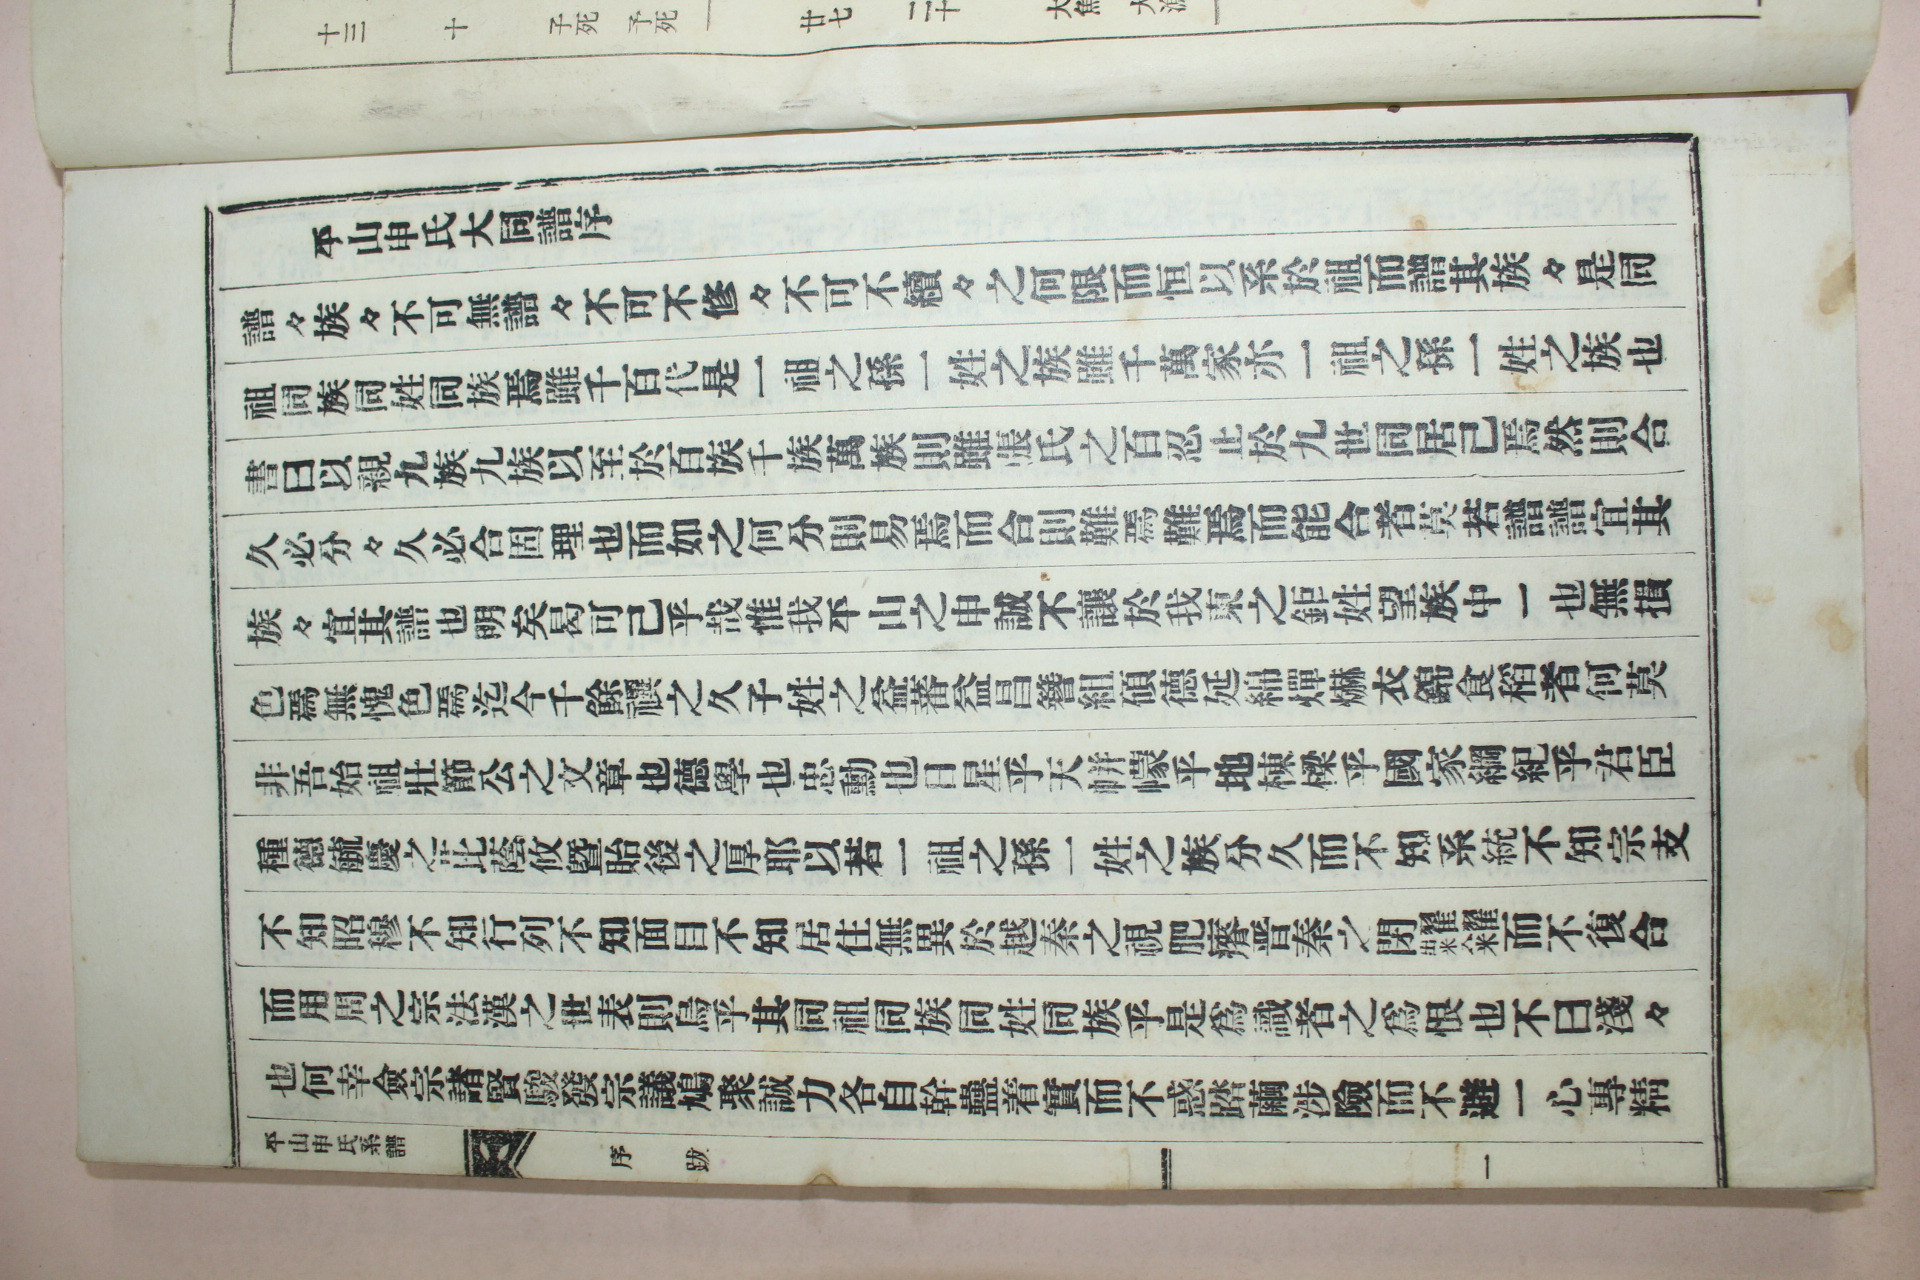 平山申氏大同譜序
譜々族々不可無譜々不可不修々不可不續々之何限而恒以系於祖而譜其族々是同
祖同族同姓同族焉雖千百代是一祖之孫一姓之族雖千萬家亦一祖之孫一姓之族也
書曰以親九族九族以至於百族千族萬族則雖張氏之百忍止於九世同居已焉然則合
久必分々久必合固理也而如之何分則易焉而合則難焉難焉而能合者莫若譜譜宜其
族々宜其譜也明矣曷可已乎哉惟我平山之申誠不讓於我東之鉅姓望族中一也無損
色焉無愧色焉迄今千餘禩之久子姓之益蕃益昌簪組碩德延綿燀爀衣錦食稻者何莫
非吾始祖壯節公之文章也德學也忠勳也日星乎天帡幪乎地棟樑乎國家綱紀乎君臣
種德毓慶之丕庇蔭攸曁貽後之厚耶以若一祖之孫一姓之族分久而不知系統不知宗支
不知昭穆不知行列不知面目不知居住無異於越秦之視肥瘠晋秦之閉糶糴出米入米而不復合
而用周之宗法漢之世表則烏乎其同祖同族同姓同族乎是爲識者之爲恨也不曰淺々
也何幸僉宗諸賢駿發宗議鳩聚誠力各自幹蠱着實而不惑踏繭涉險而不避一心專精
平山申氏系譜
序
跋
一
十三
十
子死
予死
一
廿七
二十